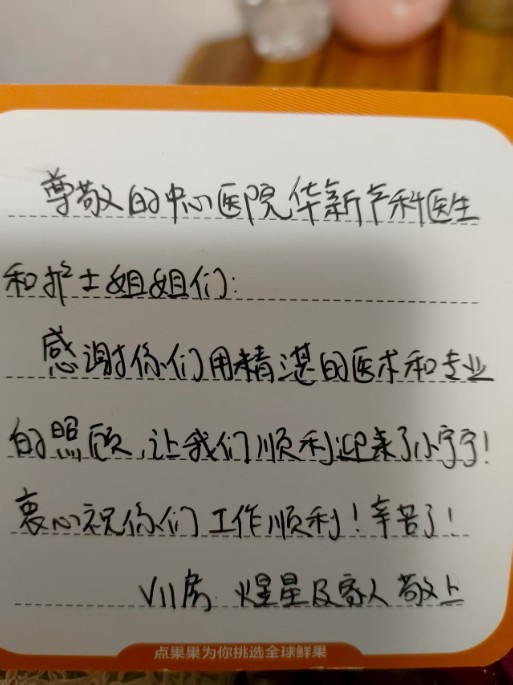 尊敬的中心医院华新产科医生
和护士姐姐们:
感谢你们用精湛的医术和专业
的照顾,让我们顺利迎来了小宁宁!
衷心祝你们工作顺利!辛苦了!
V11房 煋星及家人 敬上
点果果为你挑选全球鲜果